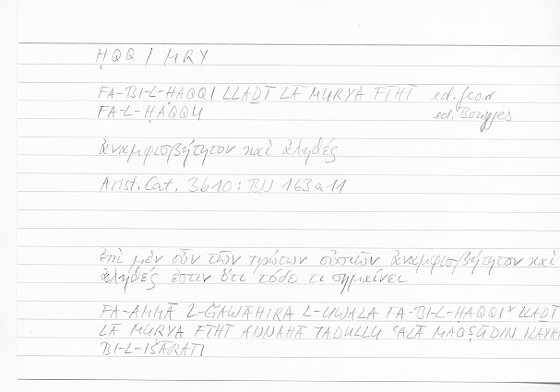 ḤQQ / MRY
FA-BI-L-ḤAQQI LLAḎĪ LĀ MURYA FĪHI ed. Geor
FA-L-ḤAQQU ed. Bouyges
ἀναμφισβήτητον καὶ ἀληθές
Arist. Cat. 3b10; BN 163a11
ἐπὶ μὲν οὖν τῶν πρώτων οὐσιῶν ἀναμφισβήτητον καὶ
ἀληθές ἐστιν ὅτι τόδε τι σημαίνει
FA-AMMĀ L-ǦAWĀHIRA L-UWALA FA-BI-L-ḤAQQI LLAḎĪ
LĀ MURYA FĪHI ANNAHĀ TADULLU ʿALĀ MAQṢŪDIN ILAYH
BI-L-IŠĀRATI